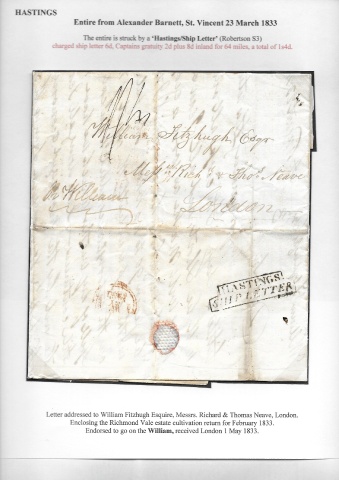 HASTINGS
Entire from Alexander Barnett, St. Vincent 23 March 1833
The entire is struck by a 'Hastings/Ship Letter' (Robertson S3)
charged ship letter 6d, Captains gratuity 2d plus 8d inland for 64 miles, a total of 1s4d.
William Fitzhugh Esqr
Messrs Richd & Thos Neave
London
HASTINGS
SHIP LETTER
Letter addressed to William Fitzhugh Esquire, Messrs. Richard & Thomas Neave, London.
Enclosing the Richmond Vale estate cultivation return for February 1833.
Endorsed to go on the William, received London 1 May 1833.